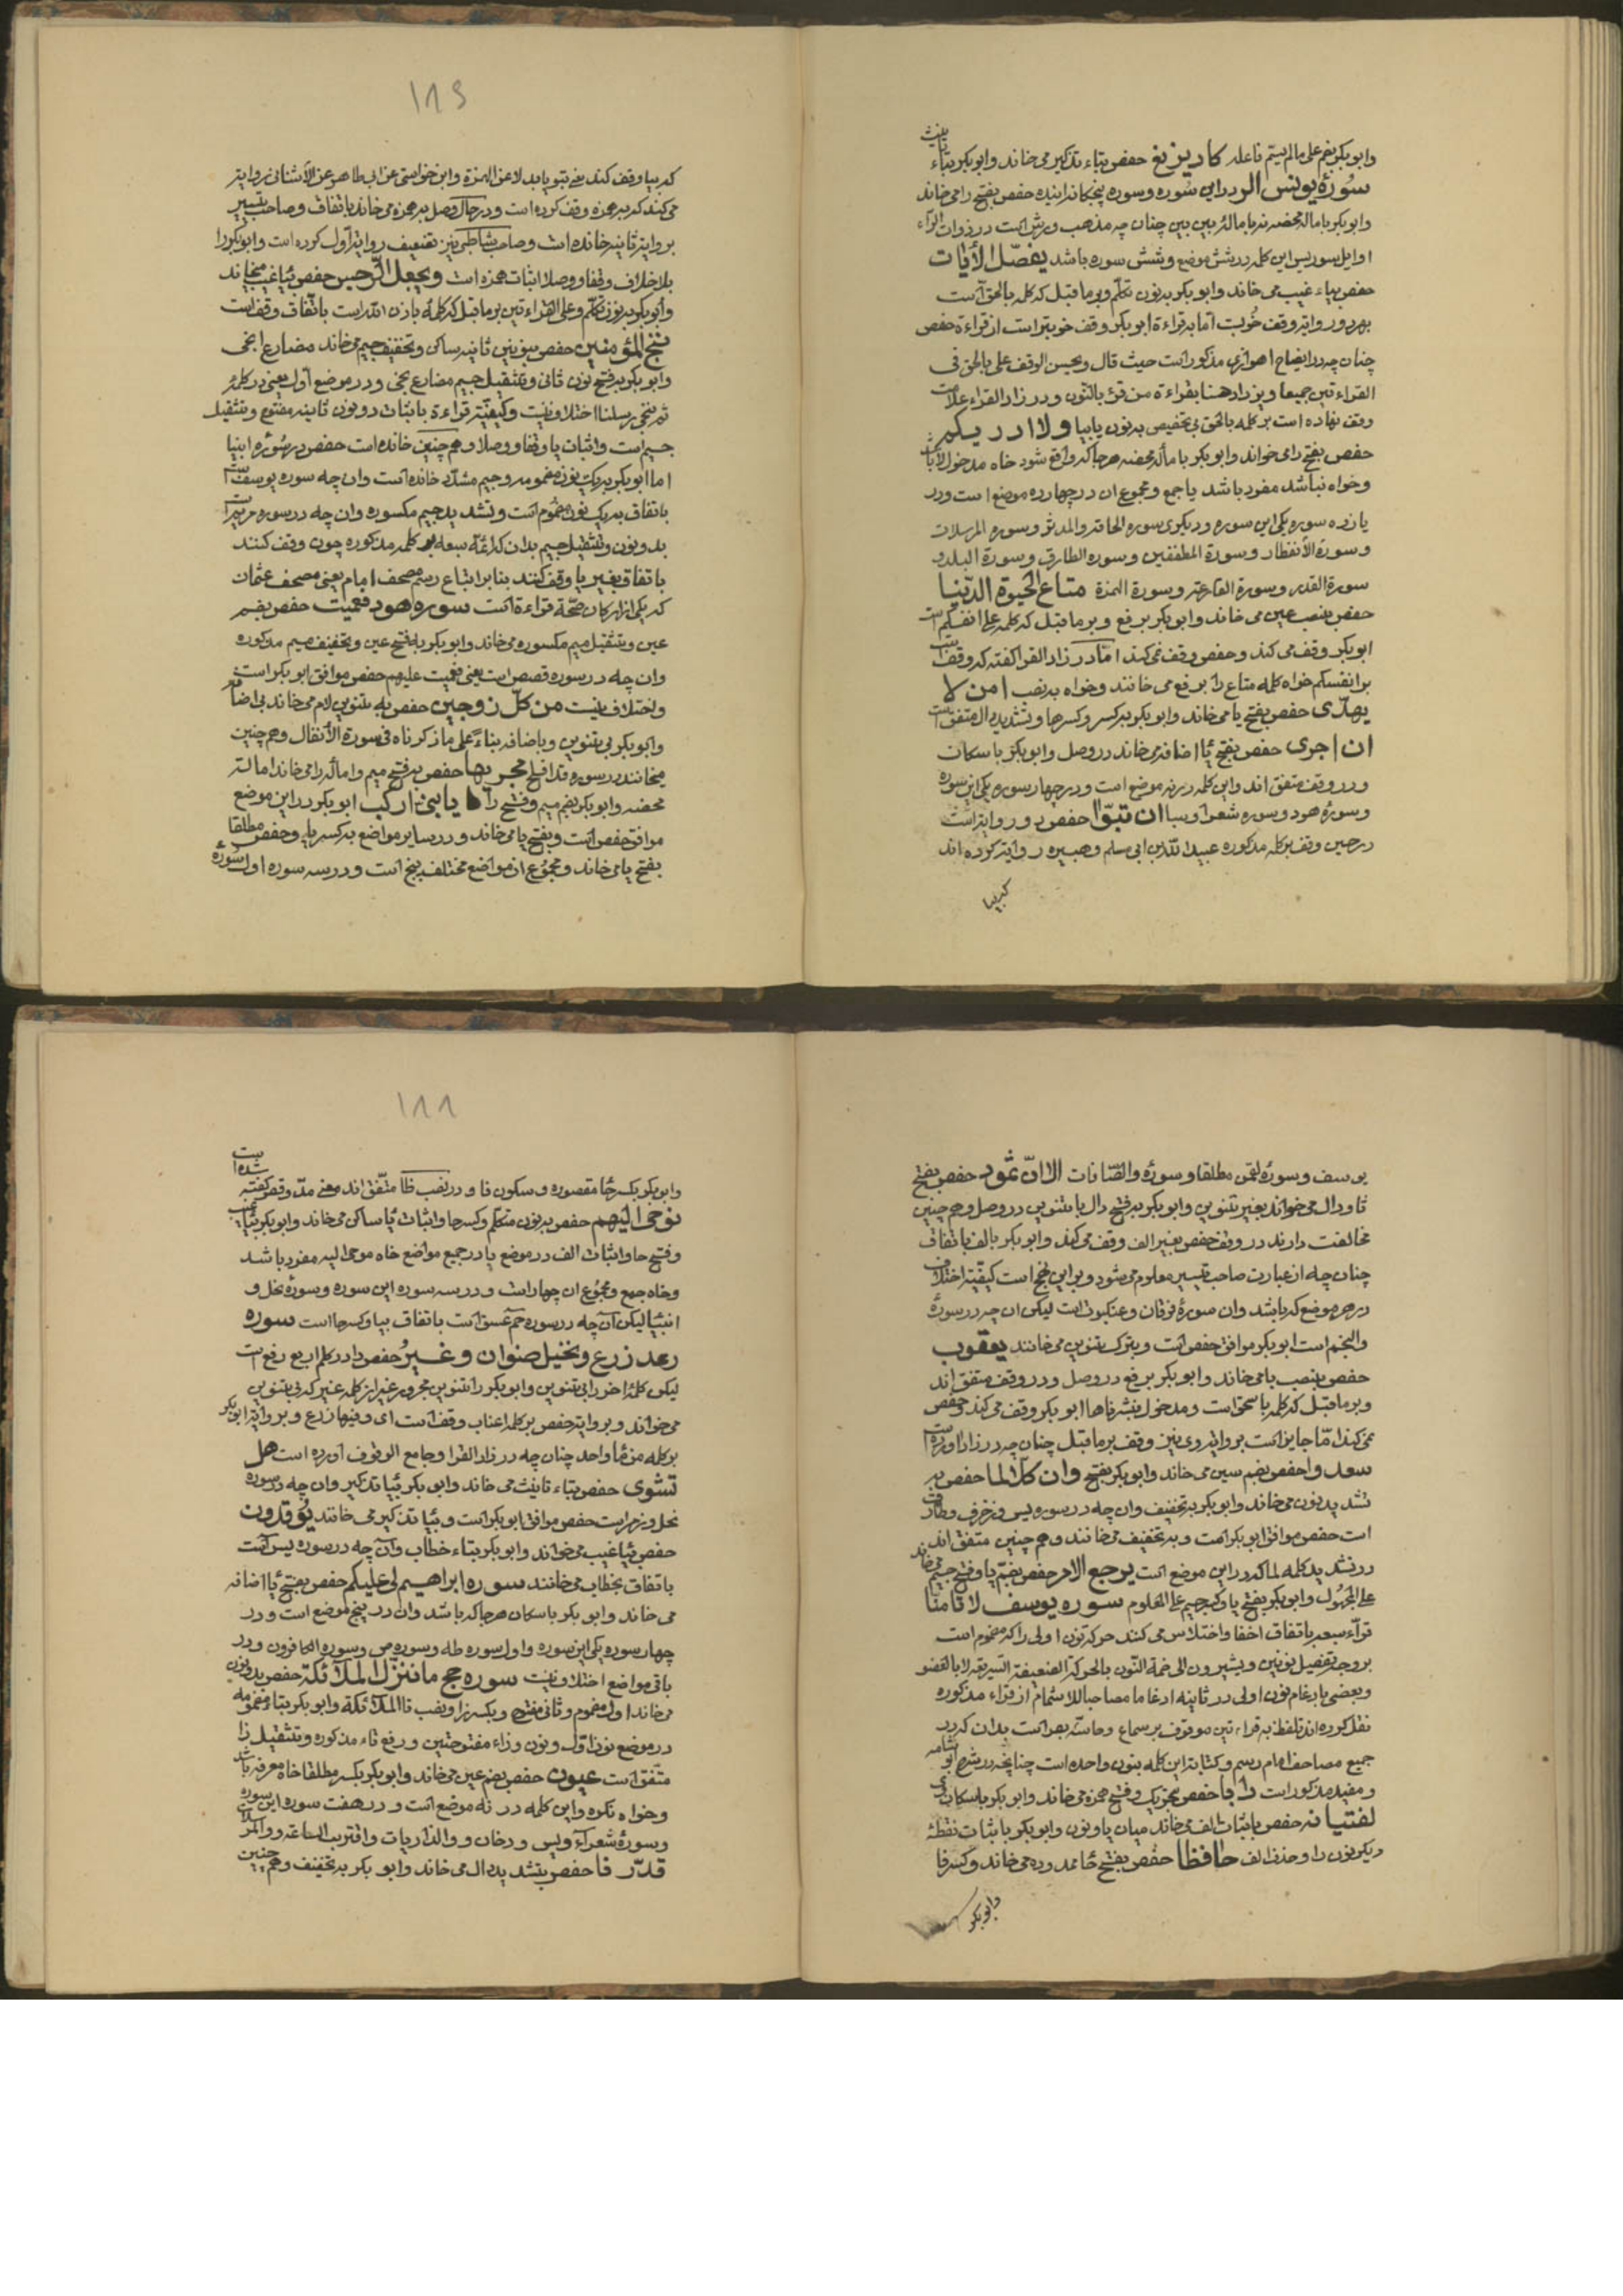 وابوبکر بضم علی مالم یسم فاعله کاد یزیغ حفص بیاء تذکیر می خاند وابوبکر بتاء تانیث
سورهٔ یونس الر دراین سوره وسوره پنجکانه اینده حفص بفتح را می خاند
وابوبکر باماله محضه نه باماله بین بین چنان چه مذهب ورش است در ذوات الراء
اوایل سور پس این کلمه در شش موضع وشش سوره باشد یفصّل الأیات
حفص بیاء غیب می خاند وابو بکر بنون تکلم وبر ماقبل که کلمه بالحق است
بهر دو روایة وقف خوبست اما بقراءة ابو بکر وقف خوبتر است از قراءة حفص
چنان چه در ایضاح اهوازی مذکور است حیث قال ویحسن الوقف علی بالحق فی
القراءتین جمیعا ویزداد حسنا بقراءة من قرء بالنون ودر زاد القراء علامت
وقف نهاده است بر کلمه بالحق بی تخصیص بنون یا بیا ولا ادریکم
حفص بفتح را می خواند وابو بکر باماله محضه هرجا که واقع شود خاه مدخول لا باشد
وخواه نباشد مفرد باشد یا جمع ومجموع ان در چهارده موضع است ودر
یازده سوره یکی این سوره ودیکری سوره الحاقه والمدثر وسوره المرسلات
وسورة الأنفطار وسورة المطففین وسوره الطارق وسورة البلد و
سورة القدر وسورة القارعة وسورة الهمزة متاع الحیوة الدّنیا
حفص بنصب عین می خاند وابو بکر برفع وبر ماقبل که کلمه علی انفسکم است
ابوبکر وقف می کند وحفص وقف نمی کند اما در زاد القرا کفته که وقف است
بر انفسکم خواه کلمه متاع را برفع می خانند وخواه بنصب امن لا
یهدّی حفص بفتح یا می خاند وابو بکر بکسر وکسر ها وتشدید دال متفق است
ان اجری حفص بفتح یا اضافه می خاند در وصل وابو بکر باسکان
ودر وقف متفق اند واین کلمه در نه موضع است ودر چهار سوره یکی این سوره
وسورهٔ هود وسوره شعرا وسبا ان تبوّا حفص دو روایة است
در حین وقف بر کلمه مذکوره عبید الله بن ابی مسلم وهبیره روایة کرده اند
که بیا
۱۸۶
که بیا وقف کند یعنی تبویا بدلا عن الهمزة وابن خواستی عن ابی طاهر عن الأشنانی روایة
می کند که بهمزه وقف کرده است ودر حال وصل بهمزه می خاند باتفاق وصاحب تیسیر
بروایة ثانیه خانده است وصاحب شاطبی نیز تضعیف روایة اول کرده است وابوبکر را
بلا خلاف وقفا ووصلا اثبات همزه است ویجعل الرّجس حفص بیا غیب میخاند
وابو بکر بنون تکلم وعلی القراءتین بر ماقبل که کلمهٔ باذن الله است باتفاق وقف است
ننج المؤمنین حفص بنونین ثانیه ساکن وتخفیف جیم می خاند مضارع انجی
وابو بکر بفتح نون ثانی وتثقیل جیم مضارع نجی ودر موضع اول یعنی در کلمه
ثم ننجی رسلنا اختلاف نیست وکیفیّة قراءة باثبات دو نون ثانیه مفتوح وتثقیل
جیم است واثبات یا وقفا ووصلا وهم چنین خانده است حفص در سورهٔ انبیا
اما ابو بکر بیک نون مضمومه وجیم مشدّد خانده است وان چه سوره یوسف است
باتفاق بیک نون مضموم است وتشدید جیم مکسوره وان چه در سوره مریم است
بدو نون وتثقیل جیم بدان که ائمّه سبعه بر کلمه مذکوره چون وقف کنند
باتفاق بغیر یا وقف کنند بنابر اتباع رسم مصحف امام یعنی مصحف عثمان
که یکی از ارکان صحّة قراءة است سوره هود فعمیت حفص بضم
عین وتثقیل میم مکسوره می خاند وابو بکر بفتح عین وتخفیف میم مذکوره
وان چه در سوره قصص است یعنی فعمیت علیهم حفص موافق ابو بکر است
واختلاف نیست من کلّ زوجین حفص به تنوین لام می خاند بی اضافه
وابو بکر بی تنوین وباضافه بناءً علی ما ذکرناه فی سورة الأنفال وهم چنین
میخانند در سوره قد افلح مجریها حفص بفتح میم واماله را می خاند امالۀ
محضه وابو بکر بضم میم وفتح را یا بنیّ ارکب ابو بکر در این موضع
موافق حفص است وبفتح یا می خاند ودر سایر مواضع بکسر یا وحفص مطلقا
بفتح یا می خاند ومجموع ان مواضع مختلف پنج است ودر سه سوره اول سورهٔ
یوسف وسورهٔ لقمن مطلقا وسورهٔ والصّافات الا انّ ثمود حفص بفتح
ثا ودال می خواند بغیر تنوین وابو بکر بفتح دال با تنوین در وصل وهم چنین
مخالفت دارند در وقف حفص بغیر الف وقف می کند وابو بکر بالف باتفاق
چنان چه از عبارت صاحب تیسیر معلوم می شود وبر این نهج است کیفیّة اختلاف
در هر موضع که باشد وان سورهٔ فرقان وعنکبوت است لیکن ان چه در سورهٔ
والنجم است ابو بکر موافق حفص است وبترک تنوین می خانند یعقوب
حفص بنصب با می خاند وابو بکر برفع در وصل ودر وقف متفق اند
وبر ماقبل که کلمه باسحق است ومدخول فبشرناها ابو بکر وقف می کند وحفص
نمی کند امّا جایز است بروایة وی نیز وقف بر ماقبل چنان چه در زاد اورده است
سعدوا حفص بضم سین می خاند وابو بکر بفتح وان کلّا لما حفص به
تشدید نون می خاند وابو بکر به تخفیف وان چه در سوره یس وزخرف وطارق
است حفص موافق ابو بکر است وبه تخفیف می خانند وهم چنین متفق اند
در تشدید کلمه لما که در این موضع است یرجع الامر حفص بضم یا وفتح جیم می خاند
علی المجهول وابو بکر بفتح یا وکسر جیم علی المعلوم سوره یوسف لا تامنّا
قراّء سبعه باتفاق اخفا واختلاس می کنند حرکة نون اولی را که مضموم است
بر وجه تفصیل نونین ویشیرون الی ضمة النّون بالحرکة الضعیفة السریعة لا بالعضو
وبعضی بادغام نون اولی در ثانیه ادغاما مصاحبا للاشمام از قراء مذکوره
نقل کرده اند تلفظ به قراءتین موقوف بر سماع وحاسّه بصر است بدان که در
جمیع مصاحف امام رسم وکتابة این کلمه بنون واحده است چنانچه در شرح ابو شامه
ومفید مذکور است دابا حفص بتحریک وفتح همزه می خاند وابو بکر باسکان
لفتیانه حفص باثبات الف می خاند میان یا ونون وابو بکر باثبات نقطهٔ
دیکر نون را وحذف الف حافظا حفص بفتح حا ممدوده می خاند وکسر فا
وابو بکر
۱۸۸
وابو بکر بکسر حا مقصوره وسکون فا ودر نصب ظا متّفق اند معنی مدّ وقصر کفته شده است
نوحی الیهم حفص بنون متکلم وکسر حا واثبات یا ساکن می خاند وابو بکر بیا غیب
وفتح حا واثبات الف در موضع یا در جمیع مواضع خاه موحی الیه مفرد باشد
وخاه جمع ومجموع ان چهار است ودر سه سوره این سوره وسورهٔ نحل و
انبیا لیکن آن چه در سوره حم عسق است باتفاق بیا وکسر حا است سوره
رعد زرع ونخیل صنوان وغیرُ حفص را در کلم اربع رفع است
لیکن کلمهٔ اخر را بی تنوین وابو بکر را تنوین مجرور غیر از کلمه غیر که بی تنوین
می خواند وبروایة حفص بر کلمه اعناب وقف است ای وفیها زرع وبروایة ابو بکر
بر کلمه من ماء واحد چنان چه در زاد القرا وجامع الوقوف اورده است هل
تستوی حفص بتاء تانیث می خاند وابو بکر بیا تذکیر وان چه در سوره
نحل وزمر است حفص موافق ابو بکر است وبیا تذکیر می خانند یوقدون
حفص بیا غیب می خواند وابو بکر بتاء خطاب وآن چه در سوره یس است
باتفاق بخطاب می خانند سوره ابراهیم لی علیکم حفص بفتح یا اضافه
می خاند وابو بکر باسکان هرجا که باشد وان در پنج موضع است ودر
چهار سوره یکی این سوره واول سوره طه وسوره ص وسوره الکافرون ودر
باقی مواضع اختلاف نیست سوره حجر ما ننزّل الملائکة حفص بدو نون
می خاند اول مضموم وثانی مفتوح وبکسر زا ونصب تا الملائکة وابو بکر بتا مضمومه
در موضع نون اوّل ونون وزاء مفتوحتین ورفع تاء مذکوره وتثقیل زا
متّفق است عیون حفص بضم عین می خاند وابو بکر بکسر مطلقا خاه معرفه باشد
وخواه نکره واین کلمه در نه موضع است ودر هفت سوره این سوره
وسورهٔ شعرآء ویس ودخان ووالذاریات واقتربت الساعة ووالمرسلات
قدّرنا حفص بتشدید دال می خاند وابو بکر به تخفیف وهم چنین